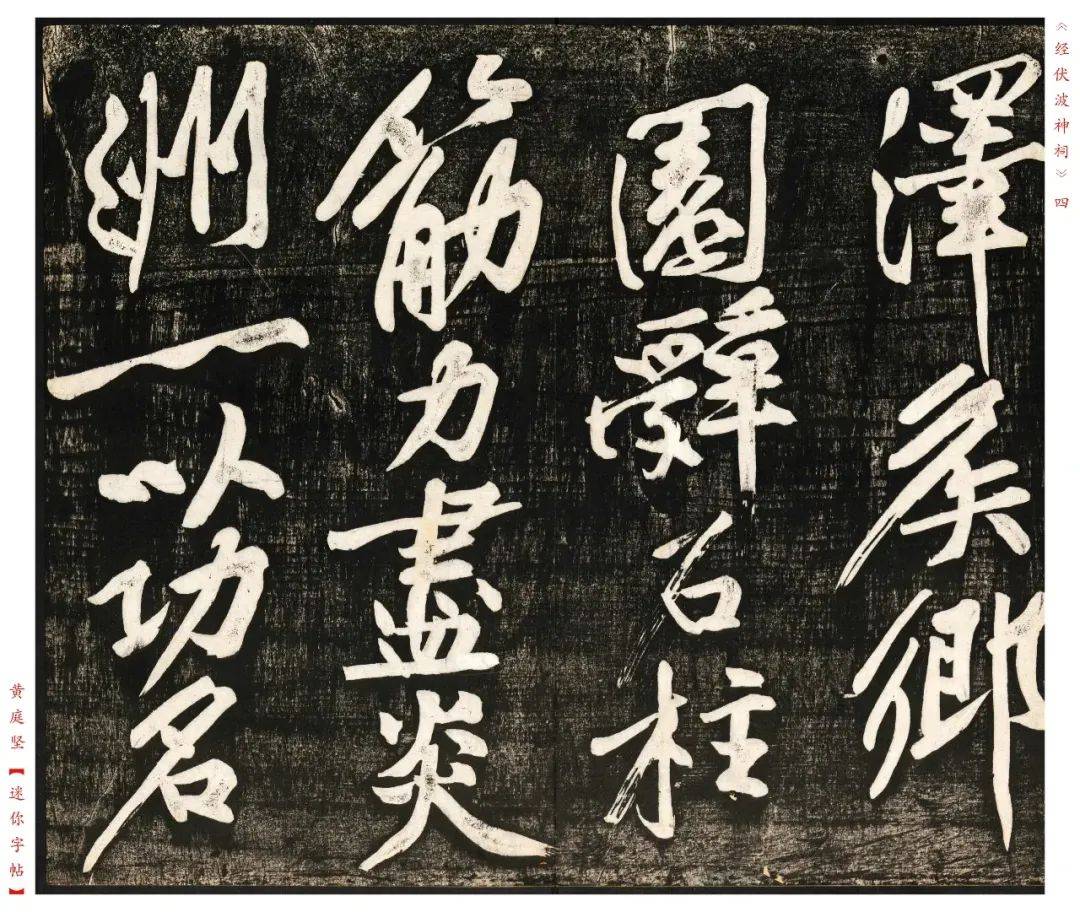 《经伏波神祠》四
澤矦鄉
園辭石柱
筋力盡炎
洲一以功名
黄庭坚【迷你字帖】